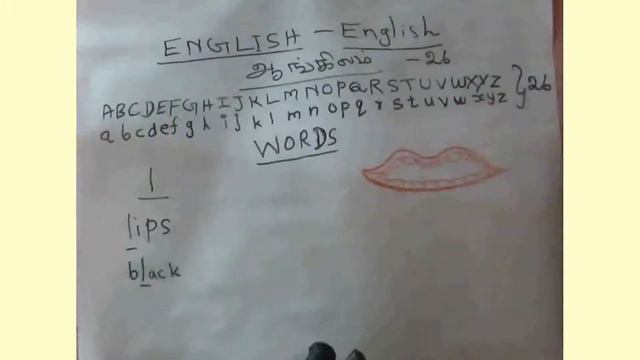 ENGLISH - English
ஆங்கிலம் - 26
ABCDEFGHIJKLMNOPQRSTUVWXYZ } 26
abcdefghijklmnopqrstuvwxyz
WORDS
l
lips
black